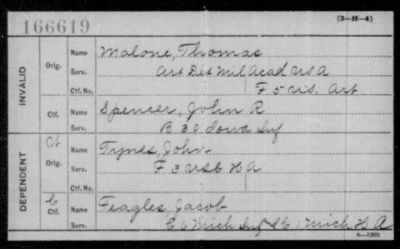 166619
(3-H-4)
INVALID
Orig.
Name Malone, Thomas
Serv. Art Det Mil Acad USA
Ctf. No. F 5 U.S. Art
Ctf.
Name Spencer, John R
Serv. B 30 Iowa Inf
DEPENDENT
Orig.
Name Tynes, John
Serv. F 3 US H A
Ctf. No.
C
Ctf.
Name Feagles, Jacob
Serv. C 6 Mich Inf & C 1 Mich H A